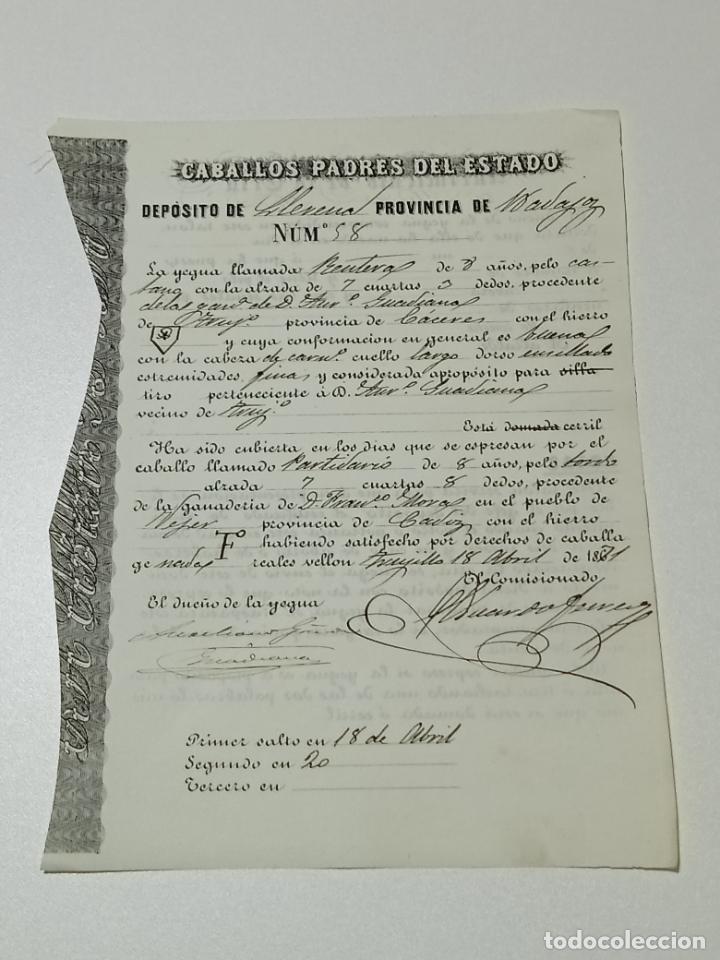 CABALLOS PADRES DEL ESTADO
DEPÓSITO DE Llerena PROVINCIA DE Badajoz
NÚMº 58
La yegua llamada Rentera de 8 años, pelo cas-
taño con la alzada de 7 cuartas 3 dedos, procedente
de la gand. de D. Aurº. Guadiana
de Trujº. provincia de Cáceres con el hierro
y cuya conformacion en general es buena
con la cabeza de carnº. cuello largo dorso ensillado
estremidades finas y considerada apropósito para silla
tiro perteneciente á D. Aurº. Guadiana
vecino de Trujº.
Está domada cerril
Ha sido cubierta en los dias que se espresan por el
caballo llamado Partidario de 8 años, pelo tordo
alzada 7 cuartas 8 dedos, procedente
de la ganaderia de D. Franco. Mora en el pueblo de
Vejer provincia de Cadiz con el hierro
Fº habiendo satisfecho por derechos de caballa
ge nada reales vellon Trujillo 18 Abril de 1871
El Comisionado
El dueño de la yegua
Guadiana
Primer salto en 18 de Abril
Segundo en 20
Tercero en
todocoleccion
todocoleccion.net